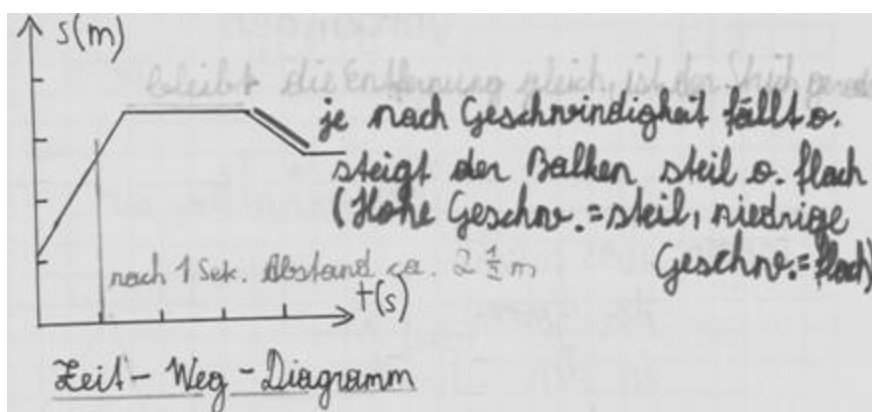 s(m)
bleibt die Entfernung gleich, ist der Strich gerade
je nach Geschwindigkeit fällt o.
steigt der Balken steil o. flach
(Hohe Geschw.=steil, niedrige
Geschw.=flach)
nach 1 Sek. Abstand ca. 2 1/2 m
t(s)
Zeit-Weg-Diagramm